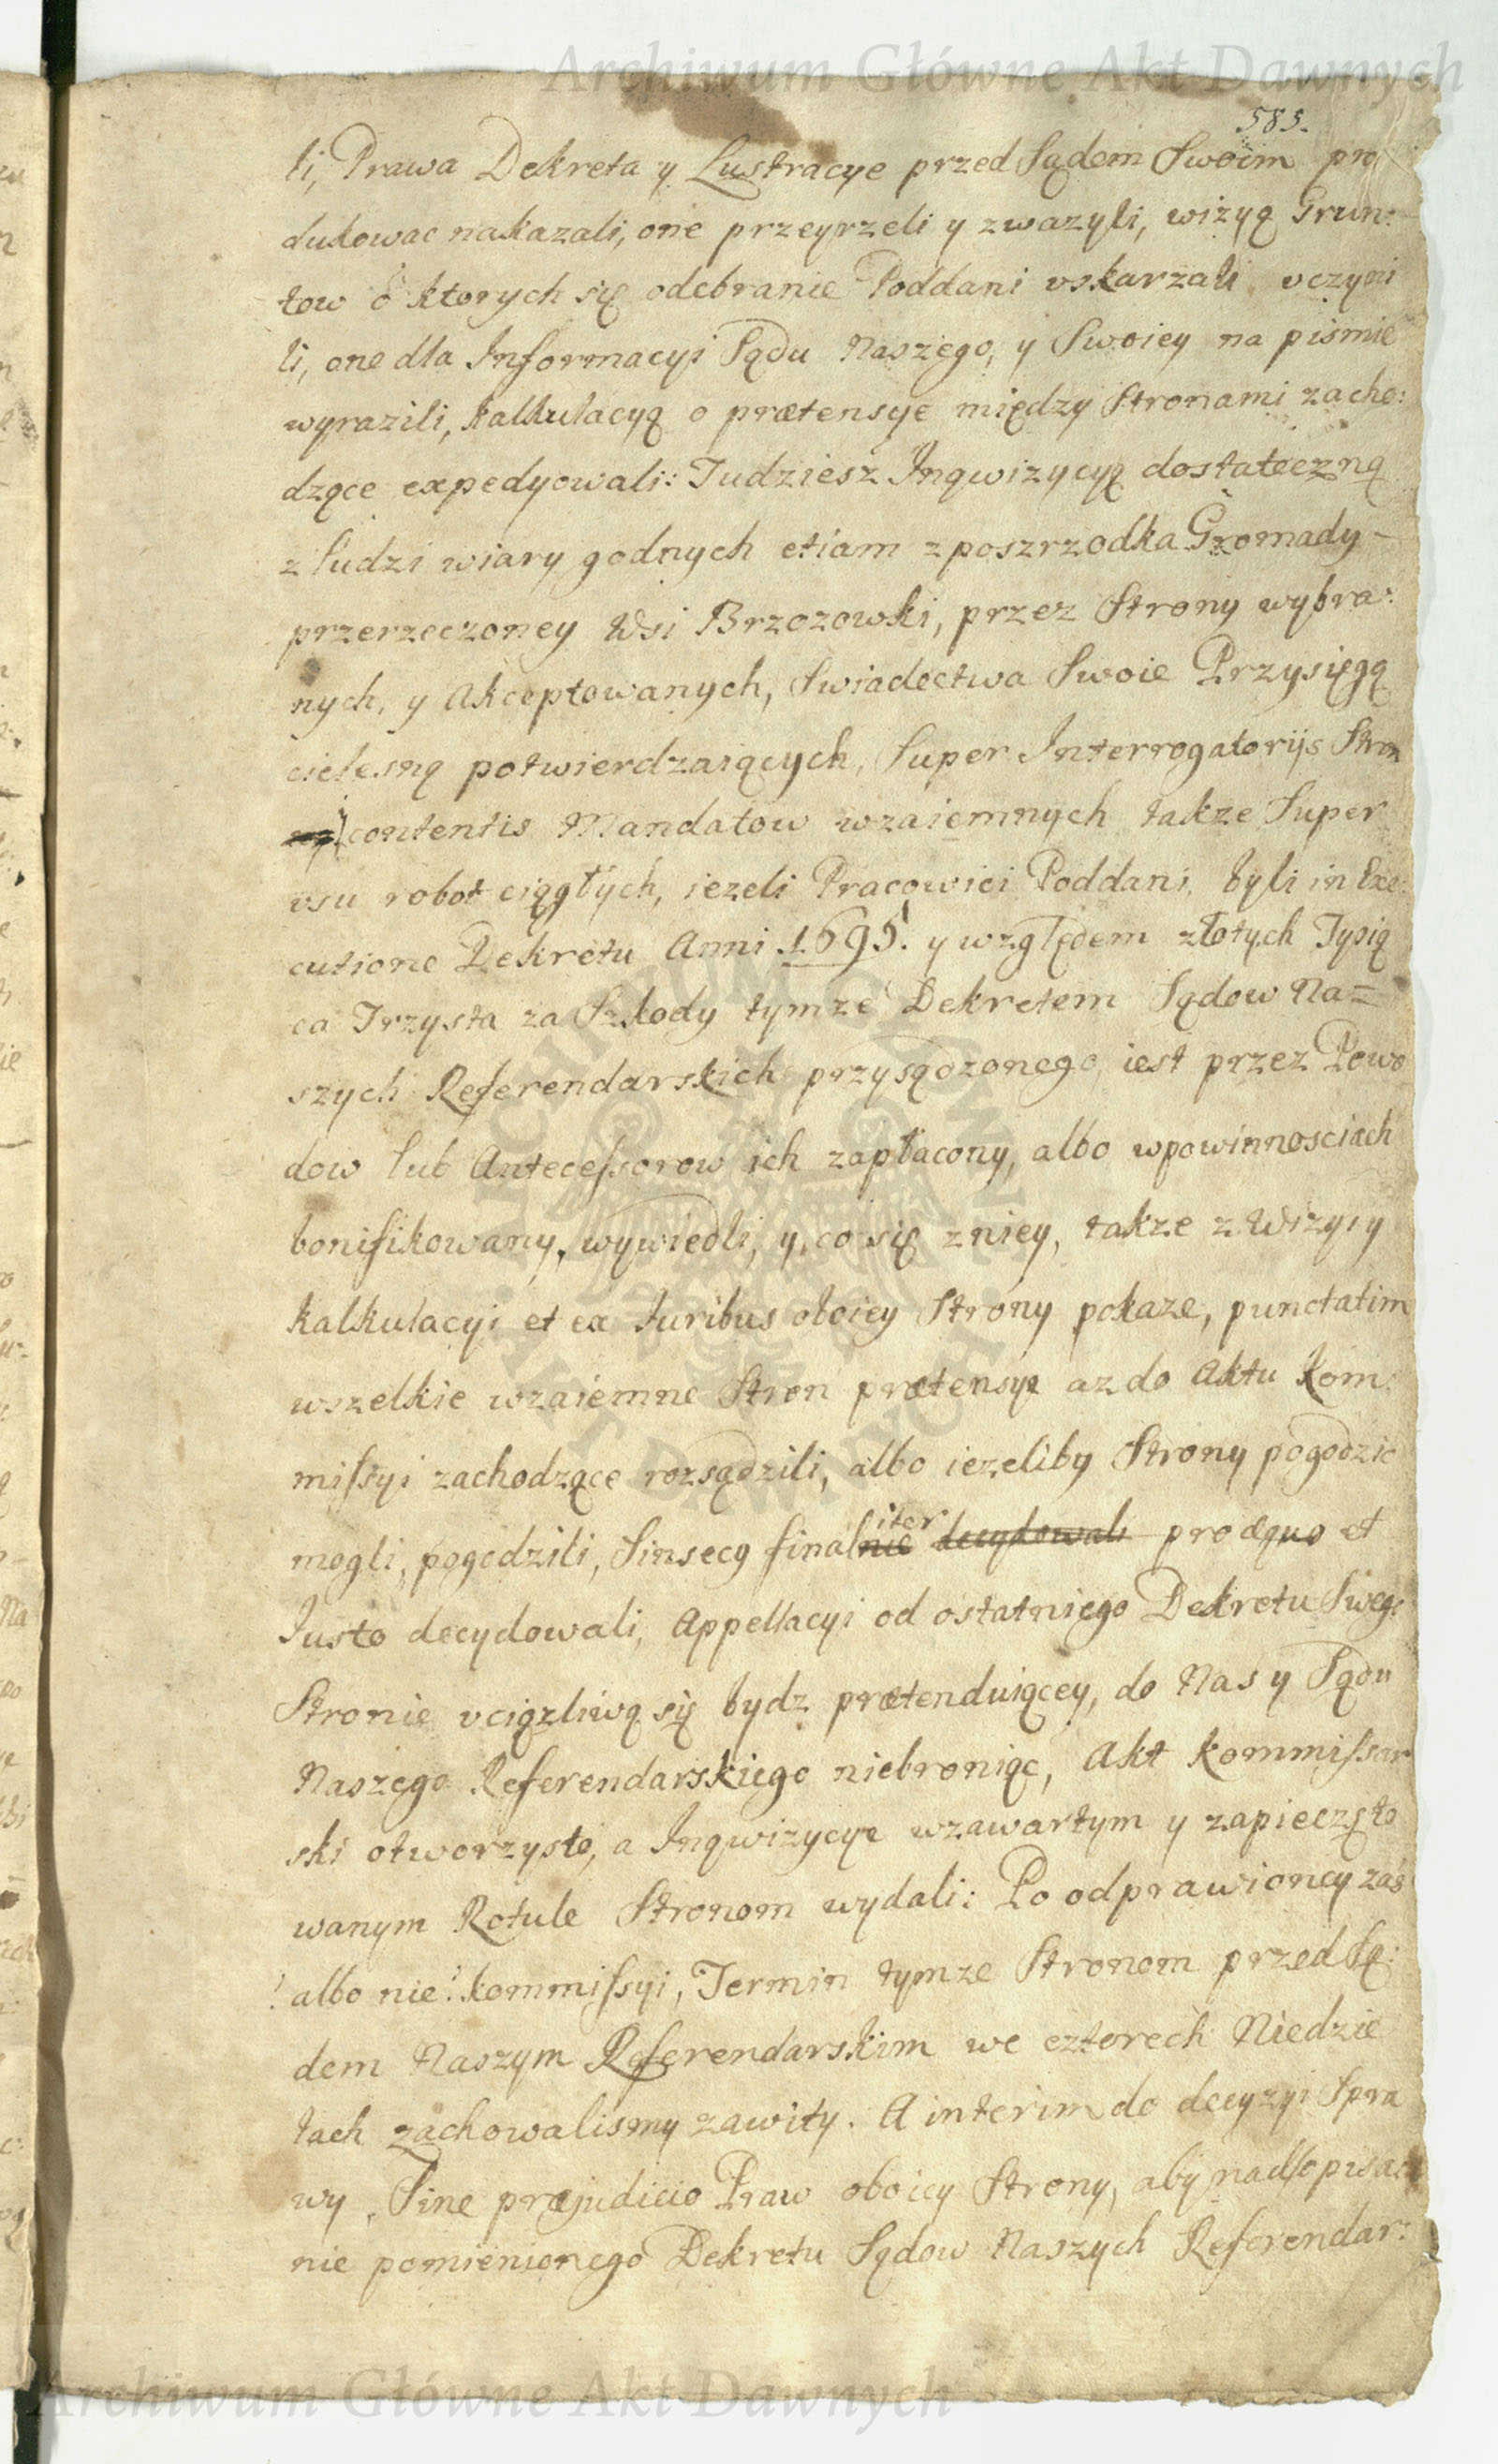 Archiwum Główne Akt Dawnych
585.
li, Prawa Dekreta y Lustracye przed Sądem Swoim pro
dukowac nakazali, one przeyrzeli y zwazyli, wizyą Grun:
tow o ktorych się odebranie Poddani uskarzali uczyni
li, one dla Informacyi Sądu Naszego, y Swoiey na pismie
wyrazili, kalkulacyą o prætensye między Stronami zacho:
dzące expedyowali: Tudziesz Inqwizycyą dostateczną
z ludzi wiary godnych etiam z poszrzodka Gromady -
przerzeczoney Wsi Brzozowki, przez Strony wybra:
nych, y Akceptowanych, Swiadectwa Swoie Przysięgą
cielesną potwierdzaiących, Super Interrogatoriis Stron
contentis Mandatow wzaiemnych takze Super
usu robot ciągłych, iezeli Pracowici Poddani byli in Exe:
cutione Dekretu Anni 1695. y względem złotych Tysią
ca Trzysta za Szkody tymze Dekretem Sądow Na=
szych Referendarskich przysądzonego iest przez Powo
dow lub Antecessorow ich zapłacony, albo wpowinnosciach
bonifikowany, wywiedli, y co się zniey, takze z Wizyiy
kalkulacyi et ex Iuribus oboiey Strony pokaze, punctatim
wszelkie wzaiemne Stron prætensye az do Aktu Kom:
missyi zachodzące rozsądzili, albo iezeliby Strony pogodzic
mogli, pogodzili, Sinsecg finalnie iter decydowali pro æquo et
Iusto decydowali, Appellacyi od ostatniego Dekretu Swego
Stronie uciązliwą się bydz prætenduiącey, do Nas y Sądu
Naszego Referendarskiego niebroniąc, Akt Kommissar
ski otworzysto, a Inqwizycye wzawartym y zapieczęto
wanym Rotule Stronom wydali: Po odprawioney zaś
! albo nie! kommissyi, Termin tymze Stronom przed Są:
dem Naszym Referendarskim we czterech Niedzie
lach zachowalismy zawity. A interim do decyzyi Spra
wy, Sine præjudicio Praw oboiey Strony, aby nadsopisac
nie pomienionego Dekretu Sądow Naszych Referendar:
Archiwum Główne Akt Dawnych